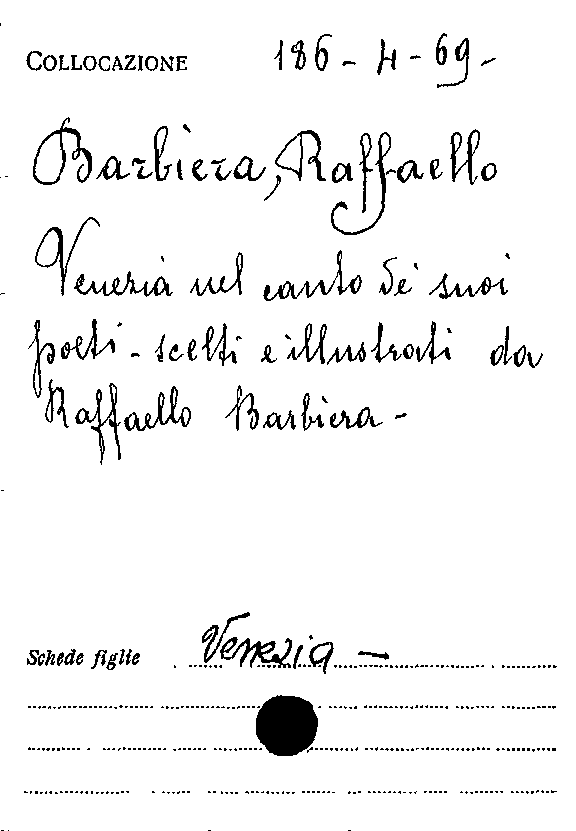 COLLOCAZIONE 186-4-69-
Barbiera, Raffaello
Venezia nel canto de' suoi
poeti - scelti e illustrati da
Raffaello Barbiera -
Schede figlie Venezia -